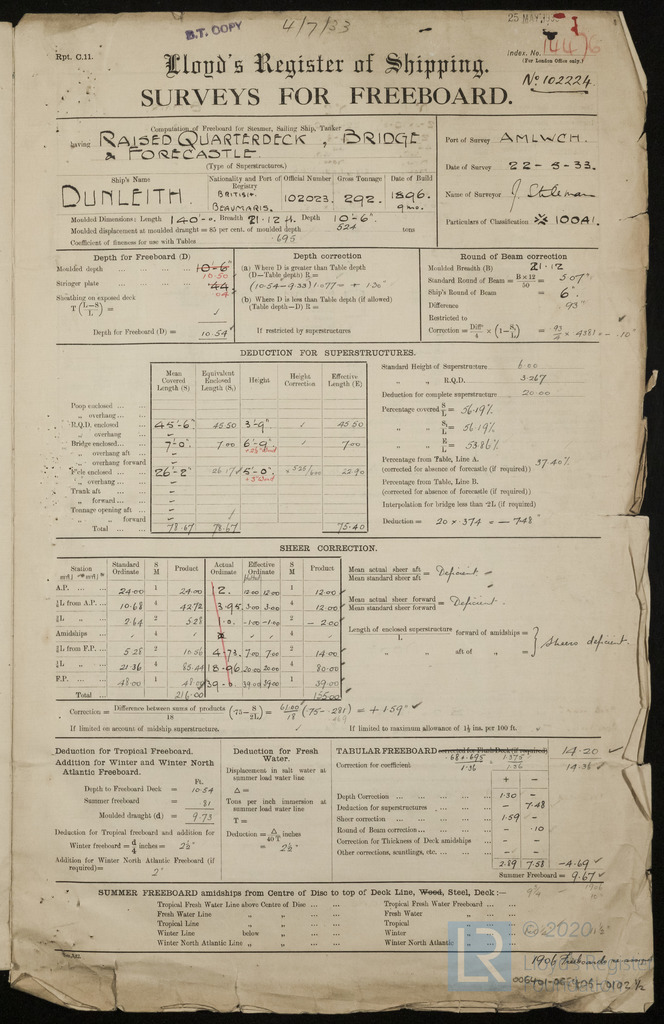 B.T. COPY
4/7/33
25 MAY 1933
Rpt. C.11.
Index. No. 14476
(For London Office only.)
Lloyd's Register of Shipping.
No. 102224
SURVEYS FOR FREEBOARD.
Computation of Freeboard for Steamer, Sailing Ship, Tanker
having RAISED QUARTERDECK, BRIDGE
& FORECASTLE
(Type of Superstructures.)
Port of Survey AMLWCH.
Date of Survey 22-5-33.
Name of Surveyor
Particulars of Classification 100A1.
Ship's Name
Nationality and Port of Registry
Official Number
Gross Tonnage
Date of Build
DUNLEITH. BRITISH. BEAUMARIS. 102023. 292. 1896. 9mo.
Moulded Dimensions: Length 140'-0. Breadth 21.12 ft. Depth 10'-6".
Moulded displacement at moulded draught = 85 per cent. of moulded depth 524 tons
Coefficient of fineness for use with Tables .695
Depth for Freeboard (D)
Moulded depth ... 10-6"
10.50
Stringer plate ... .44
.04
Sheathing on exposed deck
T (L-S/L) =
Depth for Freeboard (D) = 10.54
Depth correction
(a) Where D is greater than Table depth
(D—Table depth) R =
(10.54-9.33)1.077 = + 1.30"
(b) Where D is less than Table depth (if allowed)
(Table depth—D) R =
If restricted by superstructures
Round of Beam correction
Moulded Breadth (B) 21.12
Standard Round of Beam = B×12/50 = 5.07"
Ship's Round of Beam = 6".
Difference .93"
Restricted to
Correction = Diff/4 × (1-S/L) = .93/4 × .4381 = - .10"
DEDUCTION FOR SUPERSTRUCTURES.
Mean Covered Length (S)
Equivalent Enclosed Length (S₁)
Height
Height Correction
Effective Length (E)
Poop enclosed ...
„ overhang ...
R.Q.D. enclosed 45'-6" 45.50 3'-9" 45.50
„ overhang
Bridge enclosed... 7'-0" 7.00 6'-9" 7.00
„ overhang aft ...
„ overhang forward
F'cle enclosed ... 26'-2" 26.17 5'-0" 22.90
„ overhang ...
Trunk aft ...
„ forward ...
Tonnage opening aft
„ „ forward
Total ... 78.67 78.67 75.40
Standard Height of Superstructure 6.00
„ „ R.Q.D. 3.267
Deduction for complete superstructure 20.00
Percentage covered S/L = 56.19%
„ „ S₁/L = 56.19%
„ „ E/L = 53.86%
Percentage from Table, Line A.
(corrected for absence of forecastle (if required)) 37.40%
Percentage from Table, Line B.
(corrected for absence of forecastle (if required))
Interpolation for bridge less than ·2L (if required)
Deduction = 20 × .374 = - 7.48"
SHEER CORRECTION.
Station
Standard Ordinate
S M
Product
Actual Ordinate
Effective Ordinate
S M
Product
A.P. ... 24.00 1 24.00 12. 12.00 12.00 1 12.00
⅙L from A.P. ... 10.68 4 42.72 3.95 3.00 3.00 4 12.00
⅓L „ 2.64 2 5.28 -1.00 -1.00 2 - 2.00
Amidships 4 4
⅓L from F.P. 5.28 2 10.56 4.73 7.00 7.00 2 14.00
⅙L „ 21.36 4 85.44 18.96 20.00 20.00 4 80.00
F.P. ... 48.00 1 48.00 39-0 39.00 39.00 1 39.00
Total ... 216.00 155.00
Mean actual sheer aft / Mean standard sheer aft = Deficient
Mean actual sheer forward / Mean standard sheer forward = Deficient
Length of enclosed superstructure / L forward of amidships =
„ aft of „ =
Sheers deficient.
Correction = Difference between sums of products / 18 (·75- S/2L) = 61.00/18 (.75-.281) = + 1.59"
.469
If limited on account of midship superstructure.
If limited to maximum allowance of 1½ ins. per 100 ft.
Deduction for Tropical Freeboard.
Addition for Winter and Winter North Atlantic Freeboard.
Ft.
Depth to Freeboard Deck = 10.54
Summer freeboard = .81
Moulded draught (d) = 9.73
Deduction for Tropical freeboard and addition for
Winter freeboard = d/4 inches = 2½"
Addition for Winter North Atlantic Freeboard (if required) = 2"
Deduction for Fresh Water.
Displacement in salt water at summer load water line
Δ =
Tons per inch immersion at summer load water line
T =
Deduction = Δ/40T inches
= 2½"
TABULAR FREEBOARD corrected for Flush Deck (if required) 14.20
Correction for coefficient .68+.695/1.36 1.375/1.36 14.36
+ -
Depth Correction ... 1.30 -
Deduction for superstructures ... - 7.48
Sheer correction ... 1.59 -
Round of Beam correction ... - .10
Correction for Thickness of Deck amidships ... - -
Other corrections, scantlings, etc. ... - -
2.89 7.58 -4.69
Summer Freeboard = 9.67
SUMMER FREEBOARD amidships from Centre of Disc to top of Deck Line, Wood, Steel, Deck:—
9¾
Tropical Fresh Water Line above Centre of Disc ...
Fresh Water Line „ „ ...
Tropical Line „ „ ...
Winter Line below „ ...
Winter North Atlantic Line „ „ ...
Tropical Fresh Water Freeboard ...
Fresh Water „ ...
Tropical „ ...
Winter „ ...
Winter North Atlantic „ ...
LR
© 2020
Lloyd's Register
1906 Freeboards